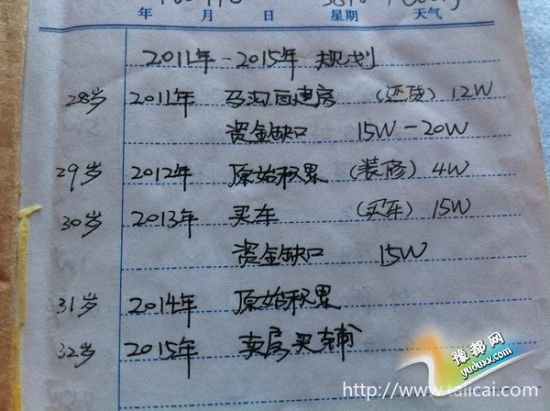 年 月 日 星期 天气
2011年-2015年 规划
28岁 2011年 马沟自建房 (还贷) 12W
资金缺口 15W-20W
29岁 2012年 原始积累 (装修) 4W
30岁 2013年 买车 (买车) 15W
资金缺口 15W
31岁 2014年 原始积累
32岁 2015年 卖房买辅
豫都网
yuduxx.com
http://www.tailcai.com